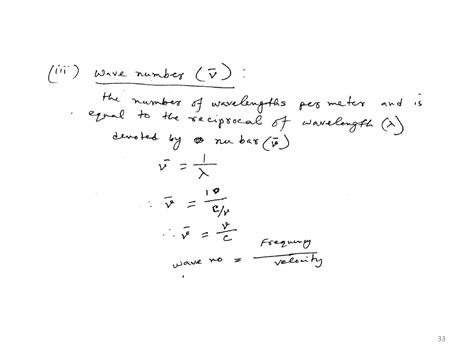 (iii) Wave number (ν̄) :
the number of wavelengths per meter and is
equal to the reciprocal of wavelength (λ)
denoted by nu bar (ν̄)
ν̄ = 1/λ
∴ ν̄ = 1/(c/ν)
∴ ν̄ = ν/c
wave no = Frequency/velocity
33